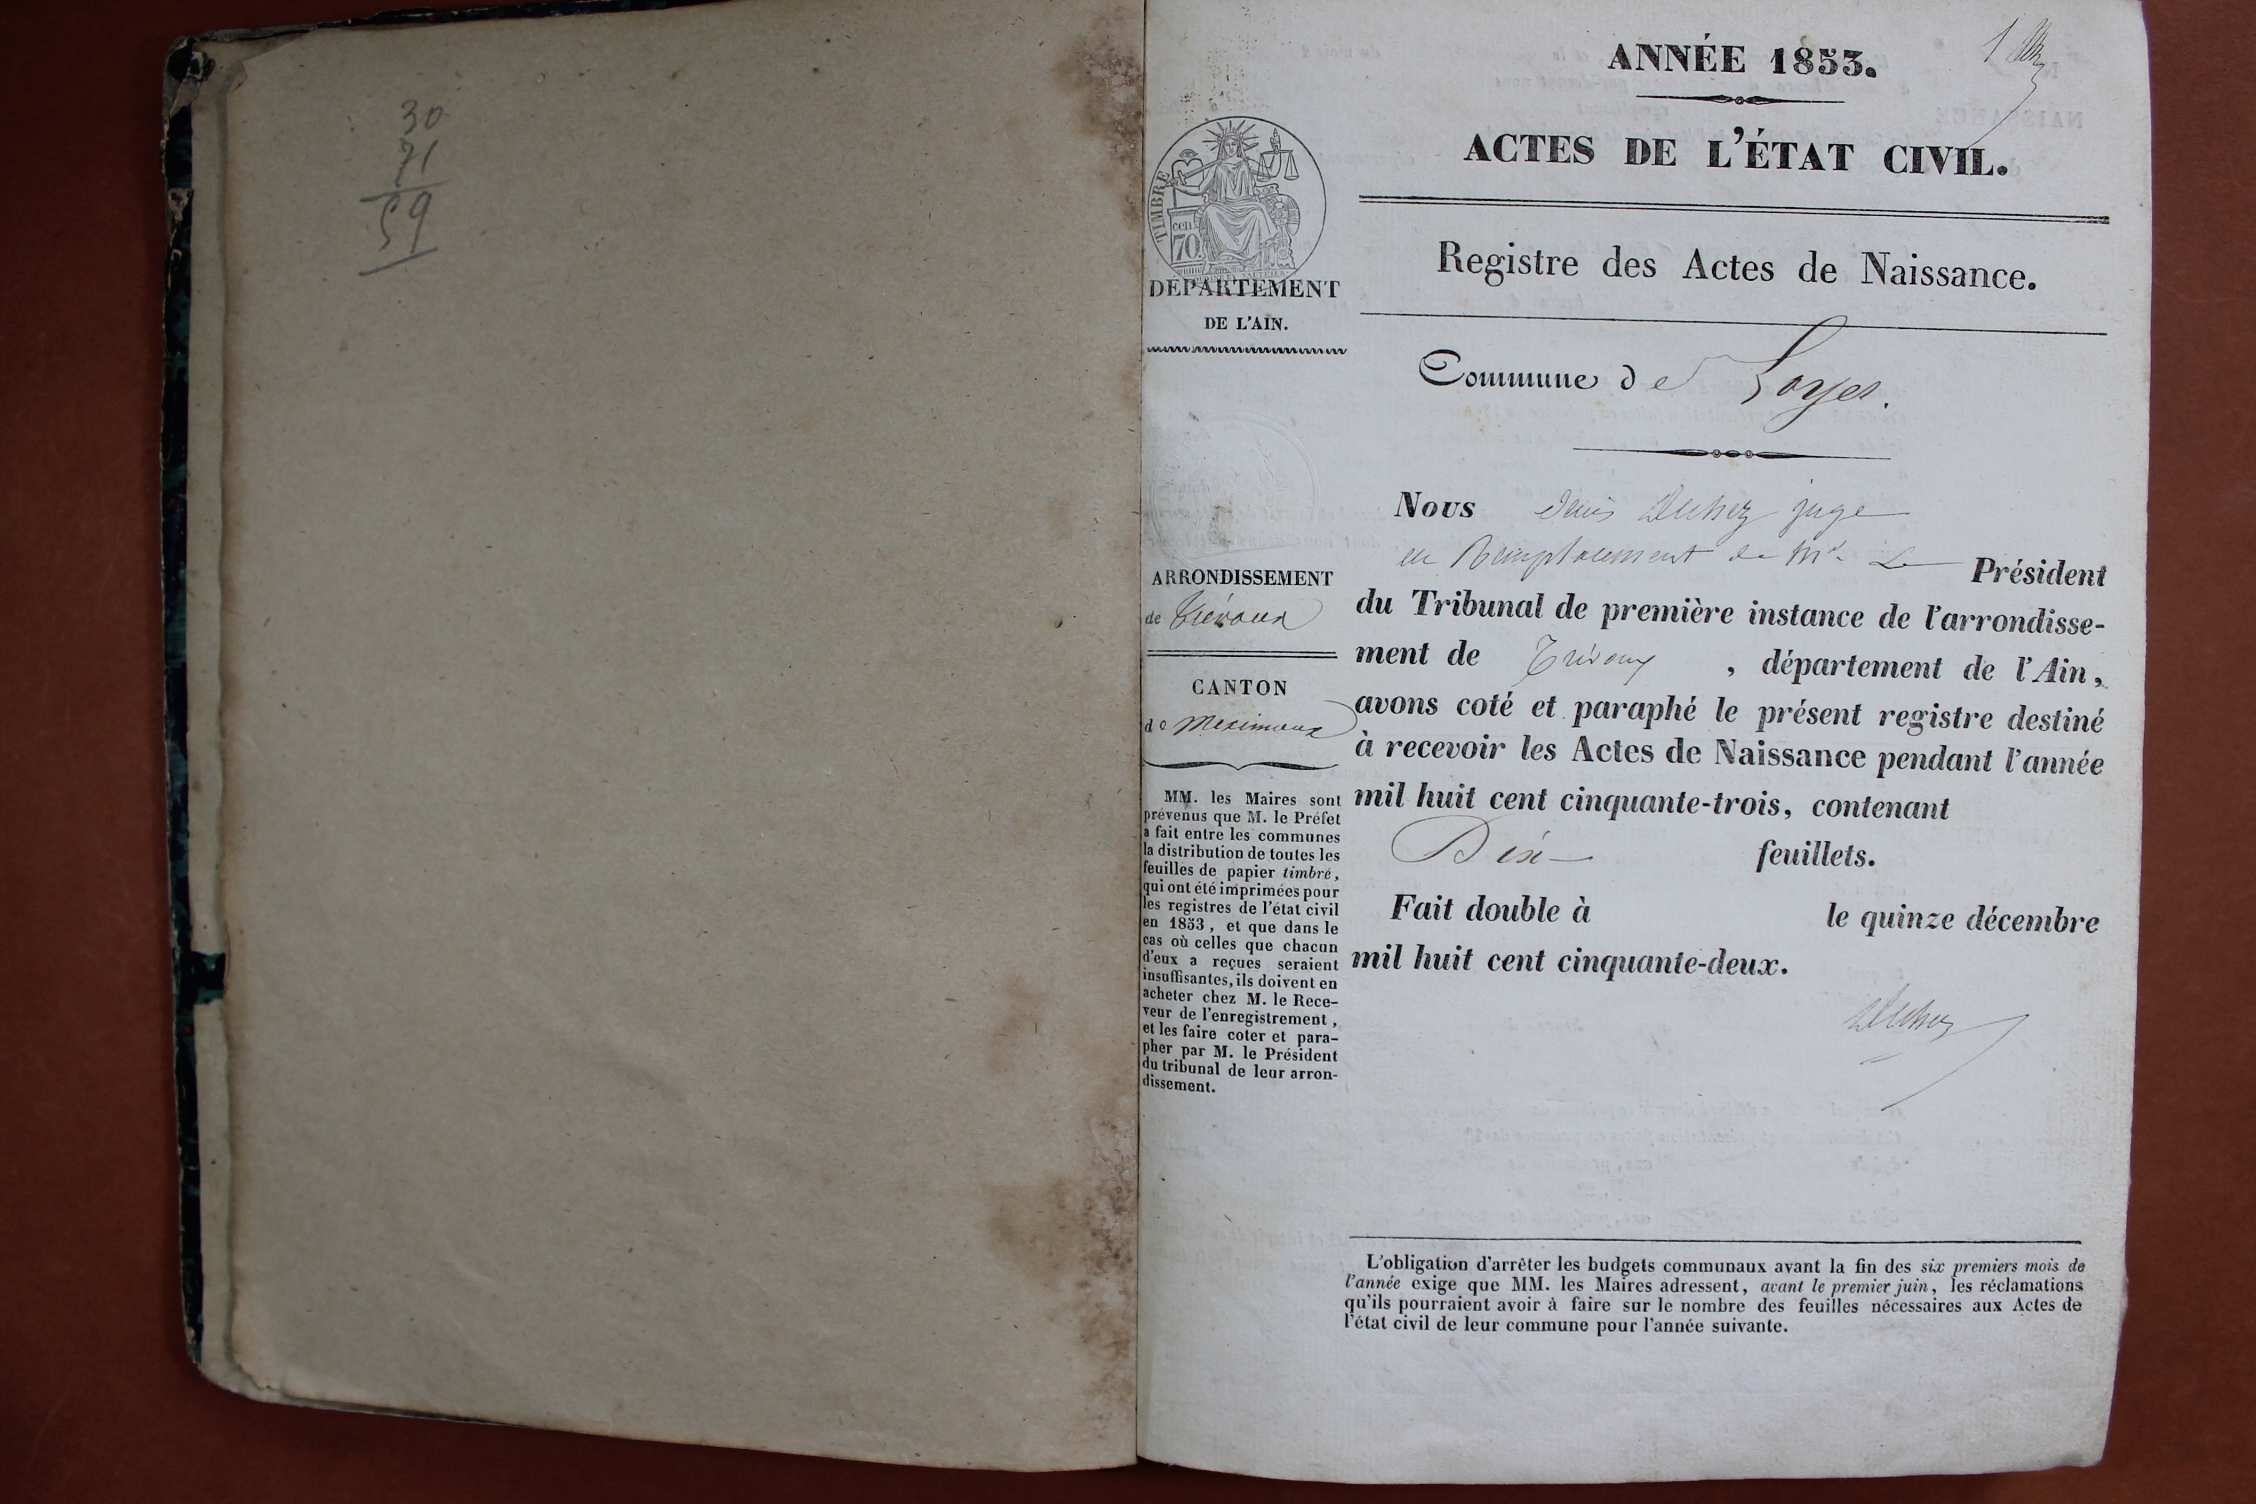 30
59
ANNÉE 1853.
1
ACTES DE L'ÉTAT CIVIL.
Registre des Actes de Naissance.
Commune de Loyes.
TIMBRE
cen
70.
DÉPARTEMENT
DE L'AIN.
ARRONDISSEMENT
de Trévoux
CANTON
de Meximieux
MM. les Maires sont
prévenus que M. le Préfet
a fait entre les communes
la distribution de toutes les
feuilles de papier timbré,
qui ont été imprimées pour
les registres de l'état civil
en 1853, et que dans le
cas où celles que chacun
d'eux a reçues seraient
insuffisantes, ils doivent en
acheter chez M. le Rece-
veur de l'enregistrement,
et les faire coter et para-
pher par M. le Président
du tribunal de leur arron-
dissement.
Nous Denis Duhez juge
en Remplacement de Mr. Le Président
du Tribunal de première instance de l'arrondisse-
ment de Trévoux, département de l'Ain,
avons coté et paraphé le présent registre destiné
à recevoir les Actes de Naissance pendant l'année
mil huit cent cinquante-trois, contenant
Dix feuillets.
Fait double à le quinze décembre
mil huit cent cinquante-deux.
Duhez
L'obligation d'arrêter les budgets communaux avant la fin des six premiers mois de
l'année exige que MM. les Maires adressent, avant le premier juin, les réclamations
qu'ils pourraient avoir à faire sur le nombre des feuilles nécessaires aux Actes de
l'état civil de leur commune pour l'année suivante.